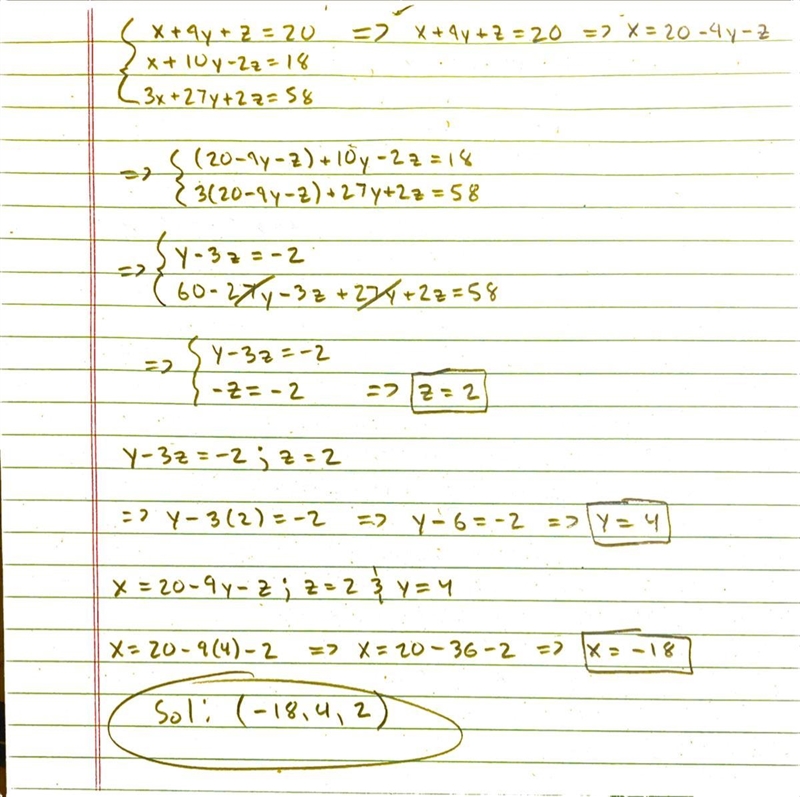 x+9y+z=20 => x+9y+z=20 => x=20-4y-z
x+10y-2z=18
3x+27y+2z=58
=> (20-9y-z)+10y-2z=18
3(20-9y-z)+27y+2z=58
=> y-3z=-2
60-27y-3z+27y+2z=58
=> y-3z=-2
-z=-2 => z=2
y-3z=-2; z=2
=> y-3(2)=-2 => y-6=-2 => y=4
x=20-9y-z; z=2 & y=4
x=20-9(4)-2 => x=20-36-2 => x=-18
Sol: (-18,4,2)